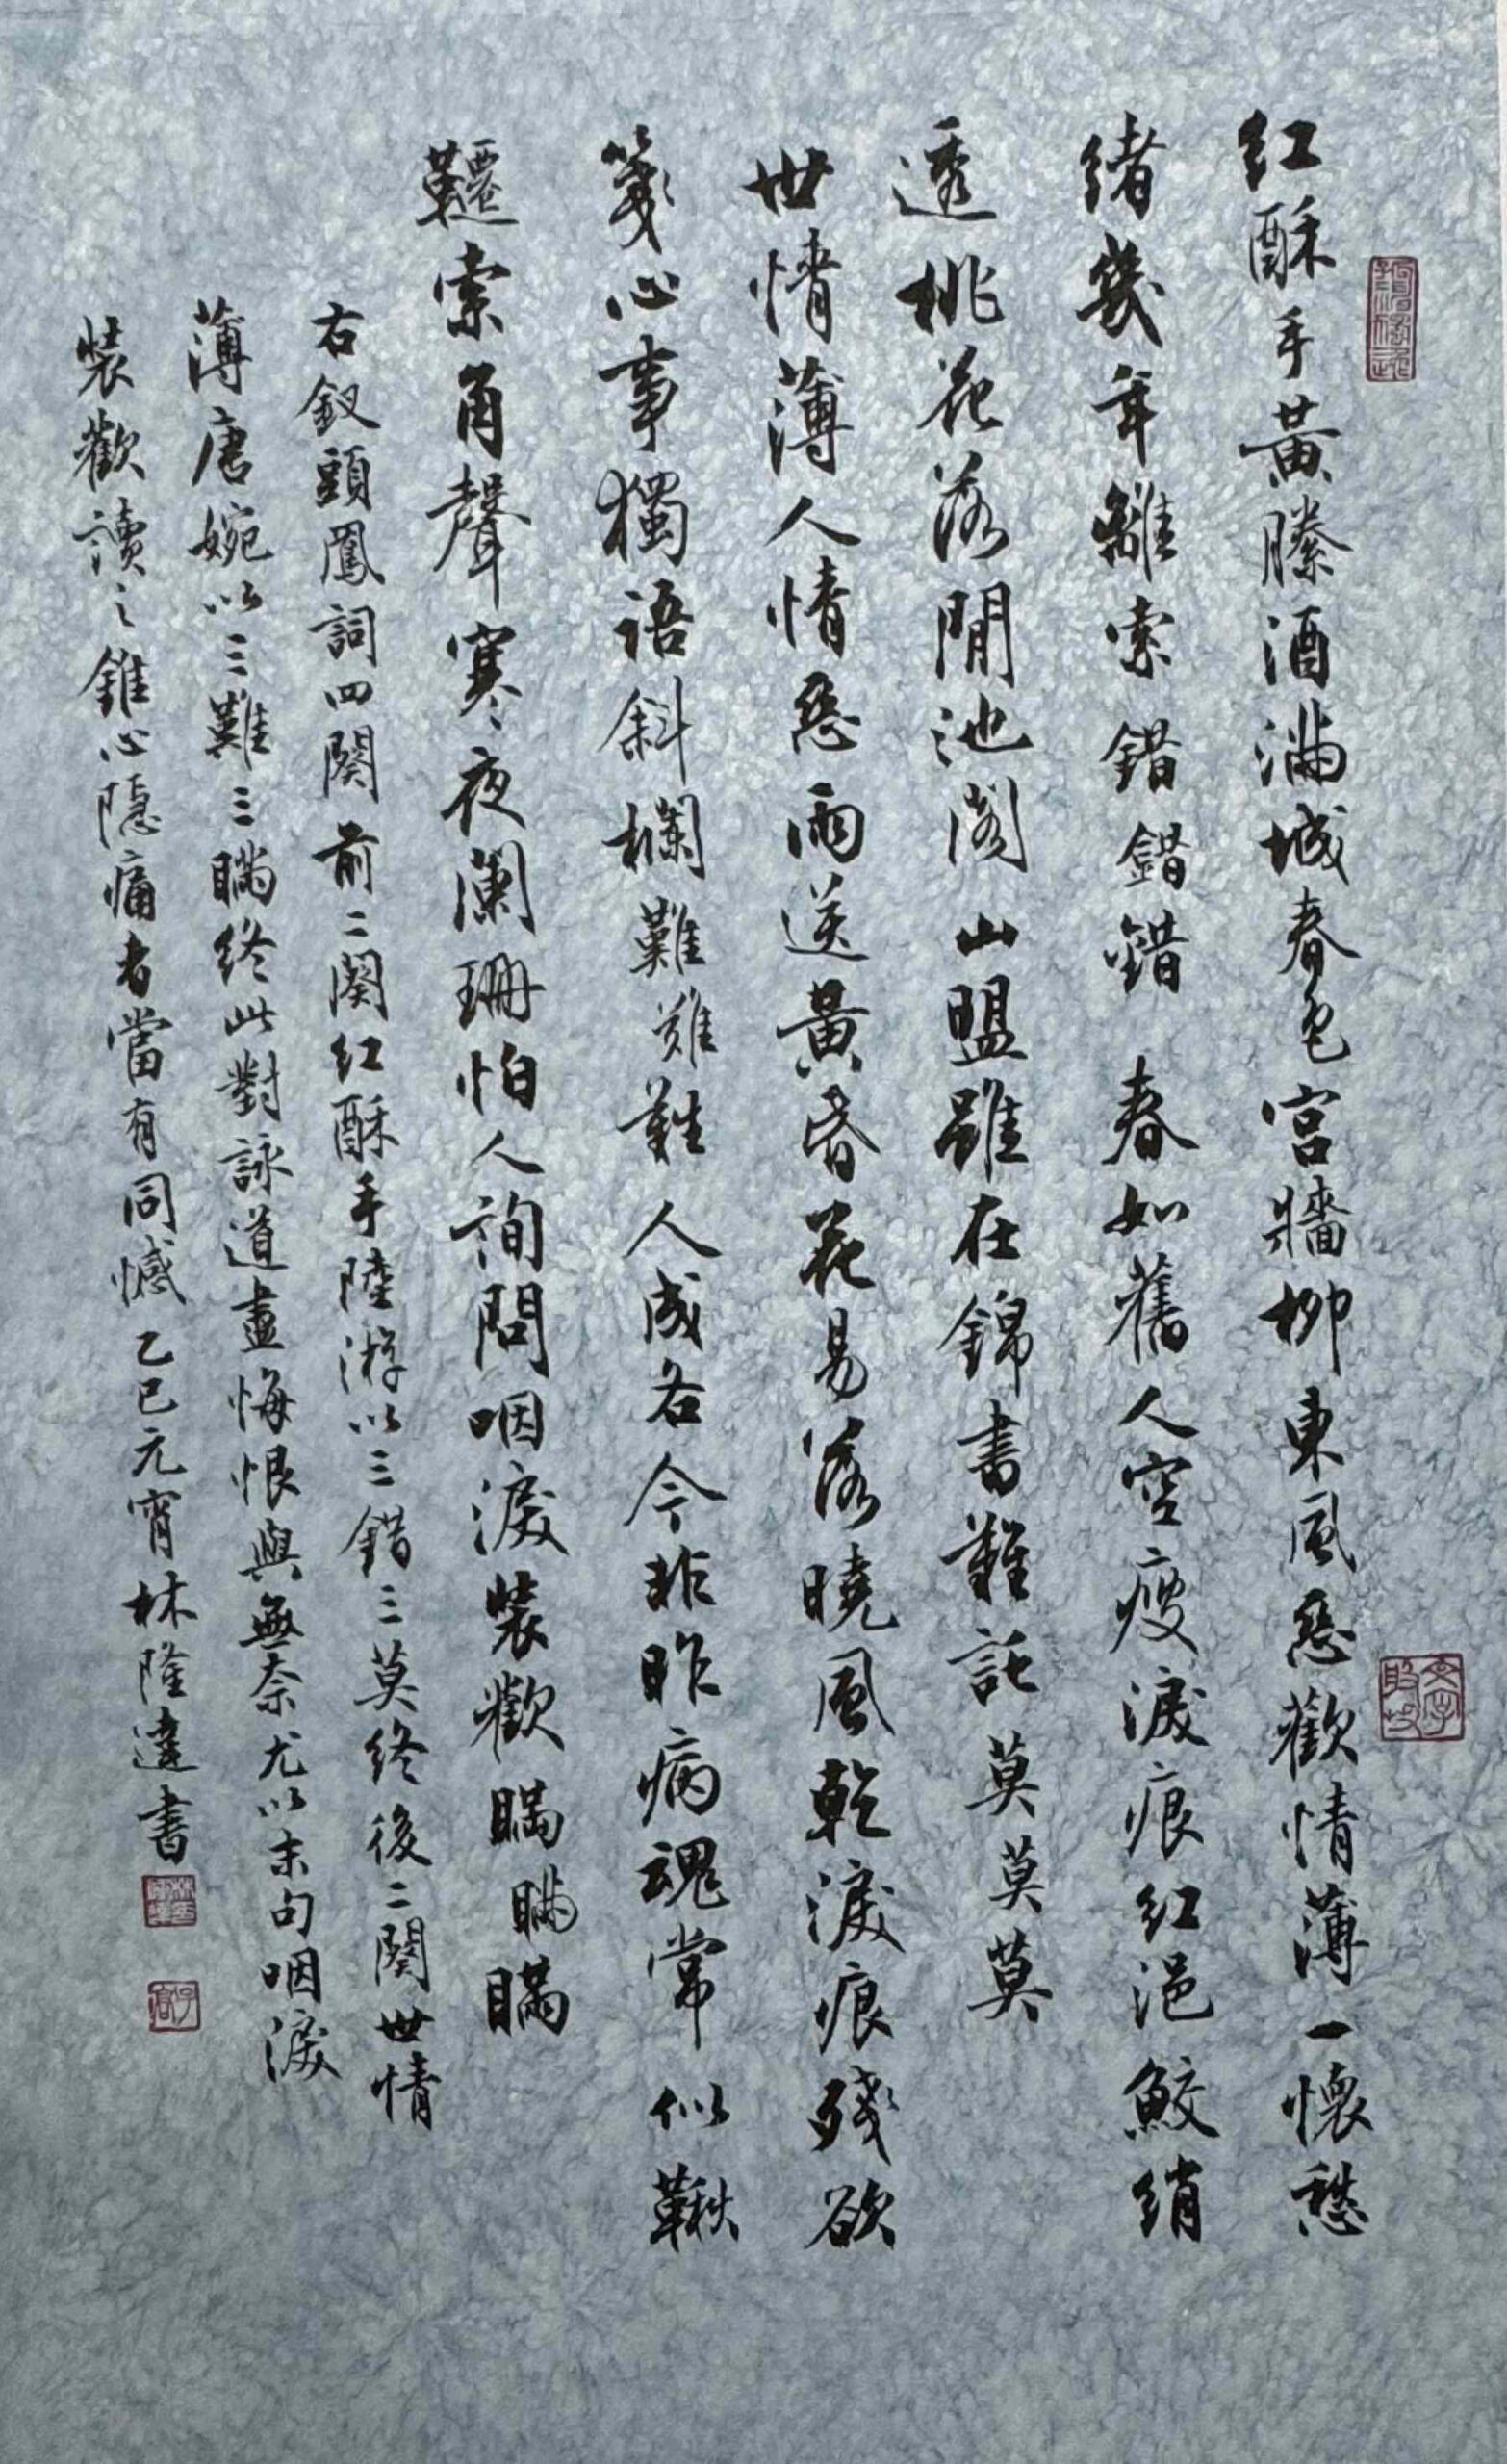 紅酥手黃縢酒滿城春色宮牆柳東風惡歡情薄一懷愁
緒幾年離索錯錯錯春如舊人空瘦淚痕紅浥鮫綃
透桃花落閒池閣山盟雖在錦書難託莫莫莫
世情薄人情惡雨送黃昏花易落曉風乾淚痕殘欲
箋心事獨語斜欄難難難人成各今非昨病魂常似鞦
韆索角聲寒夜闌珊怕人詢問咽淚裝歡瞞瞞瞞
右釵頭鳳詞四闋前二闋紅酥手陸游以三錯三莫終後二闋世情
薄唐婉以三難三瞞終此對詠道盡悔恨與無奈尤以末句咽淚
裝歡讀之錐心隱痛者當有同憾乙巳元宵林隆達書